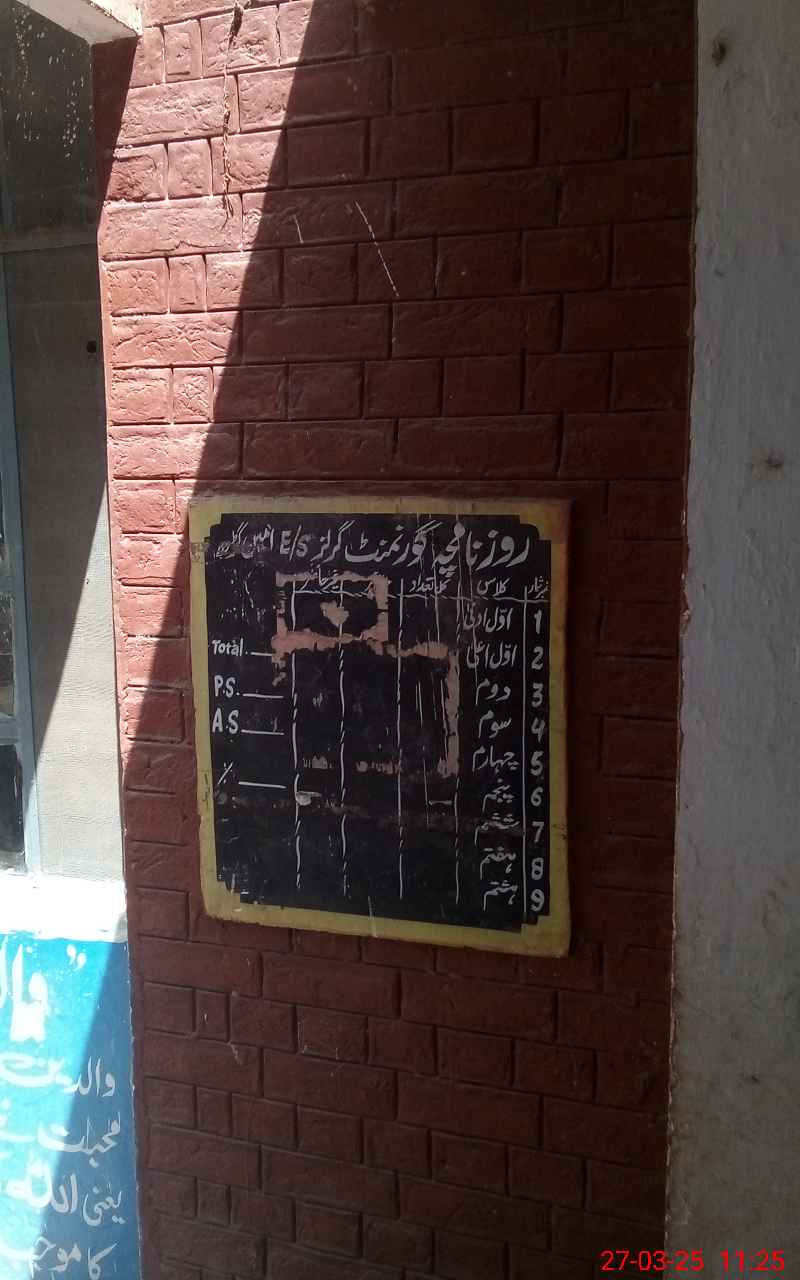 روزنامچہ گورنمنٹ گرلز E/S
نمبرشمار کلاس کل تعداد حاضر غیر حاضر
1 اوّل ادنیٰ
2 اوّل اعلیٰ
3 دوم
4 سوم
5 چہارم
6 پنجم
7 ششم
8 ہفتم
9 ہشتم
Total.
P.S.
A.S
%
والدین
یعنی اللہ
کا موجب
27-03-25 11:25